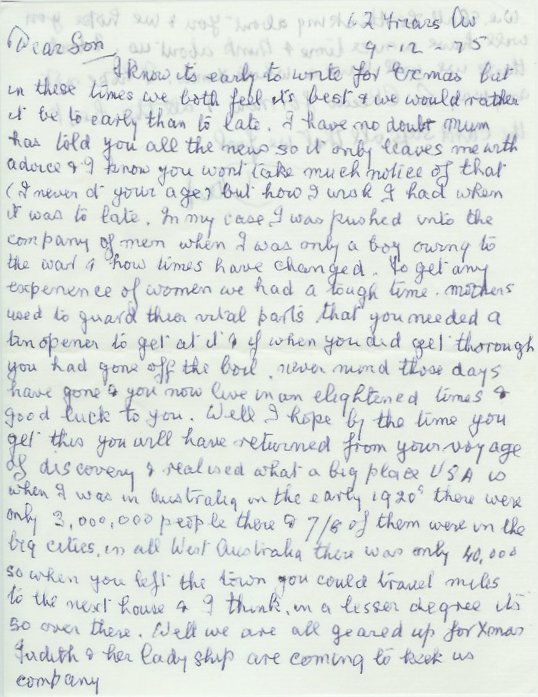 62 Friars Av
9-12-75
Dear Son
I know its early to write for Exmas but
in these times we both feel its best & we would rather
it be to early than to late. I have no doubt mum
has told you all the news so it only leaves me with
advice & I know you wont take much notice of that
(I never at your age) but how I wish I had when
it was to late. In my case I was pushed into the
company of men when I was only a boy owing to
the war & how times have changed. To get any
experience of women we had a tough time. mothers
used to guard their vital parts that you needed a
tin opener to get at it & if when you did get thorough
you had gone off the boil. never mind those days
have gone & you now live in an elightened times &
good luck to you. Well I hope by the time you
get this you will have returned from your voyage
of discovery & realised what a big place USA is
when I was in Australia in the early 1920s there were
only 3,000,000 people there & 7/8 of them were in the
big cities, in all West Australia there was only 40,000
so when you left the town you could travel miles
to the next house & I think, in a lesser degree its
so over there. Well we are all geared up for Xmas
Judith & her lady ship are coming to keek us
company